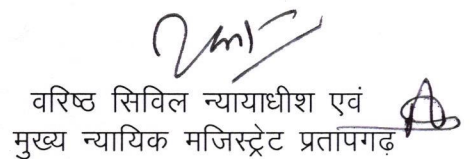 वरिष्ठ सिविल न्यायाधीश एवं
मुख्य न्यायिक मजिस्ट्रेट प्रतापगढ़